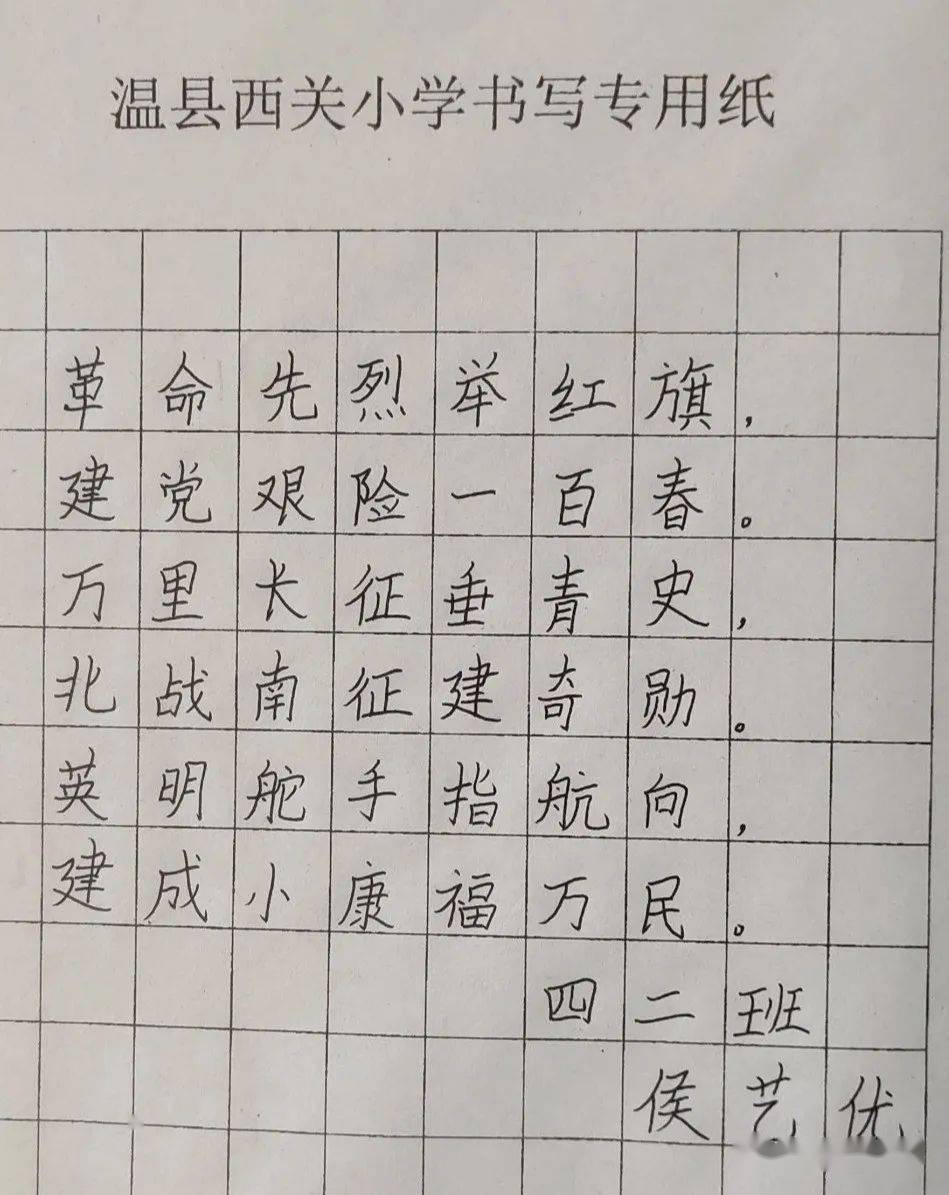 温县西关小学书写专用纸
革命先烈举红旗，
建党艰险一百春。
万里长征垂青史，
北战南征建奇勋。
英明舵手指航向，
建成小康福万民。
四二班
侯艺优